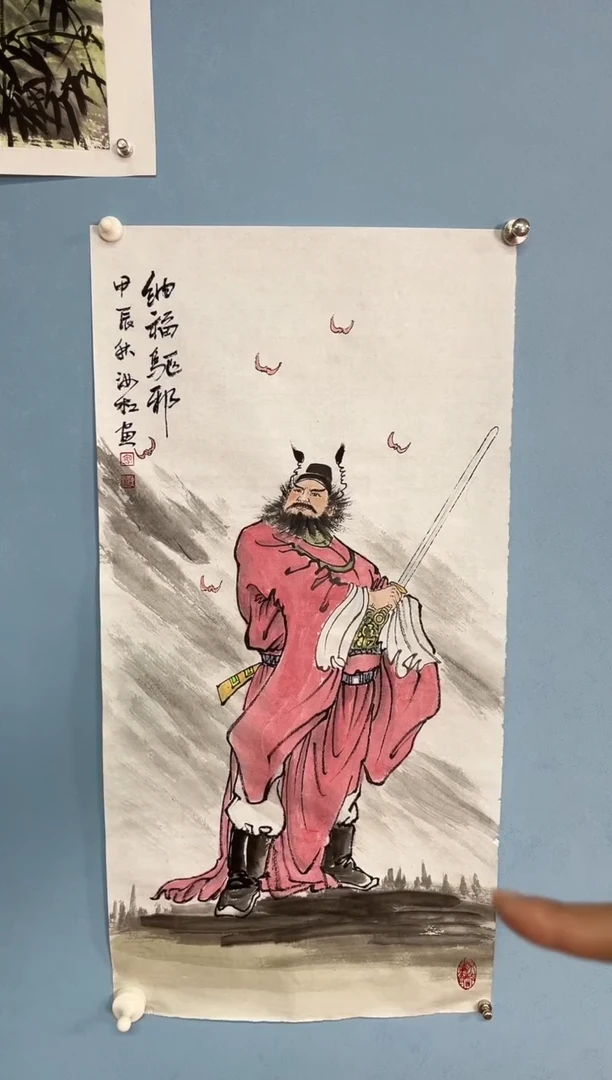 纳福驱邪
甲辰秋汝松画